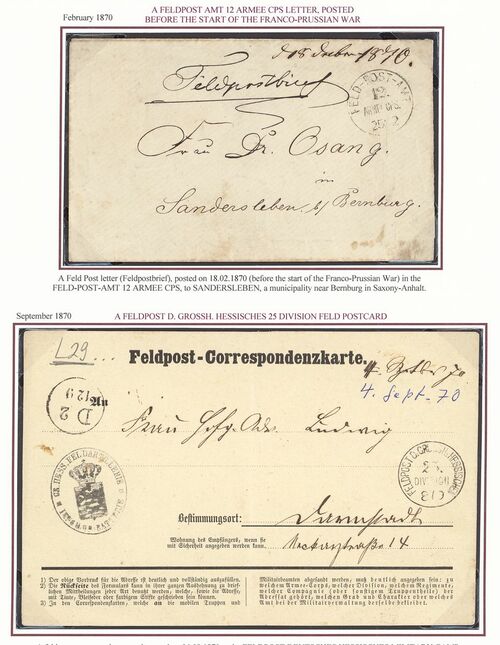 February 1870
A FELDPOST AMT 12 ARMEE CPS LETTER, POSTED
BEFORE THE START OF THE FRANCO-PRUSSIAN WAR
1870.
Feldpostbrief
FELD-POST-AMT
12.
ARMEE CPS.
25 2
Frau Dr. Osang.
in
Sandersleben b/ Bernburg.
A Feld Post letter (Feldpostbrief), posted on 18.02.1870 (before the start of the Franco-Prussian War) in the
FELD-POST-AMT 12 ARMEE CPS, to SANDERSLEBEN, a municipality near Bernburg in Saxony-Anhalt.
September 1870
A FELDPOST D. GROSSH. HESSISCHES 25 DIVISION FELD POSTCARD
L29...
Feldpost-Correspondenzkarte.
4. Sept. 70
An
D 2
12 9
Frau Ludwig
FELDPOST D. GROSSH. HESSISCHES
25.
DIVISION
8/9
GR. HESS. FELDARTILLERIE
Bestimmungsort: Darmstadt
Wohnung des Empfängers, wenn sie
mit Sicherheit angegeben werden kann: Neckarstraße 14
1) Der obige Vordruck für die Adresse ist deutlich und vollständig auszufüllen.
2) Die Rückseite des Formulars kann in ihrer ganzen Ausdehnung zu brief-
lichen Mittheilungen jeder Art benutzt werden, welche, sowie die Adresse,
mit Tinte, Bleifeder oder farbigem Stifte geschrieben sein können.
3) In den Correspondenzkarten, welche an die mobilen Truppen und
Militairbeamten abgesandt werden, muß deutlich angegeben sein: zu
welchem Armee-Corps, welcher Division, welchem Regimente,
welcher Compagnie (oder sonstigem Truppentheile) der
Adressat gehört, welchen Grad und Charakter oder welches Amt
bei der Militairverwaltung derselbe bekleidet.